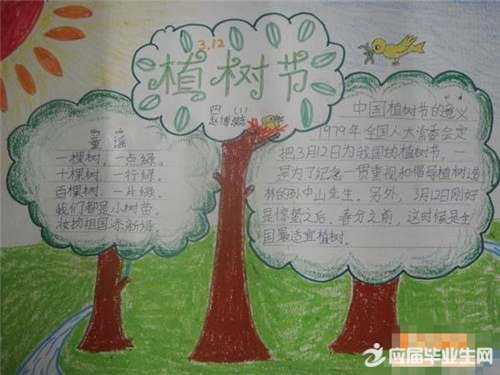 3.12
植树节
四（1）
童谣
一棵树，一点绿，
十棵树，一行绿，
百棵树，一片绿，
我们都是小树苗，
妆扮祖国添新绿。
中国植树节的意义
1979年全国人大常委会定
把3月12日为我国的植树节，一
是为了纪念一贯重视和倡导植树造
林的孙中山先生。另外，3月12日刚好
是惊蛰之后、春分之前，这时候是全
国最适宜植树。
应届毕业生网